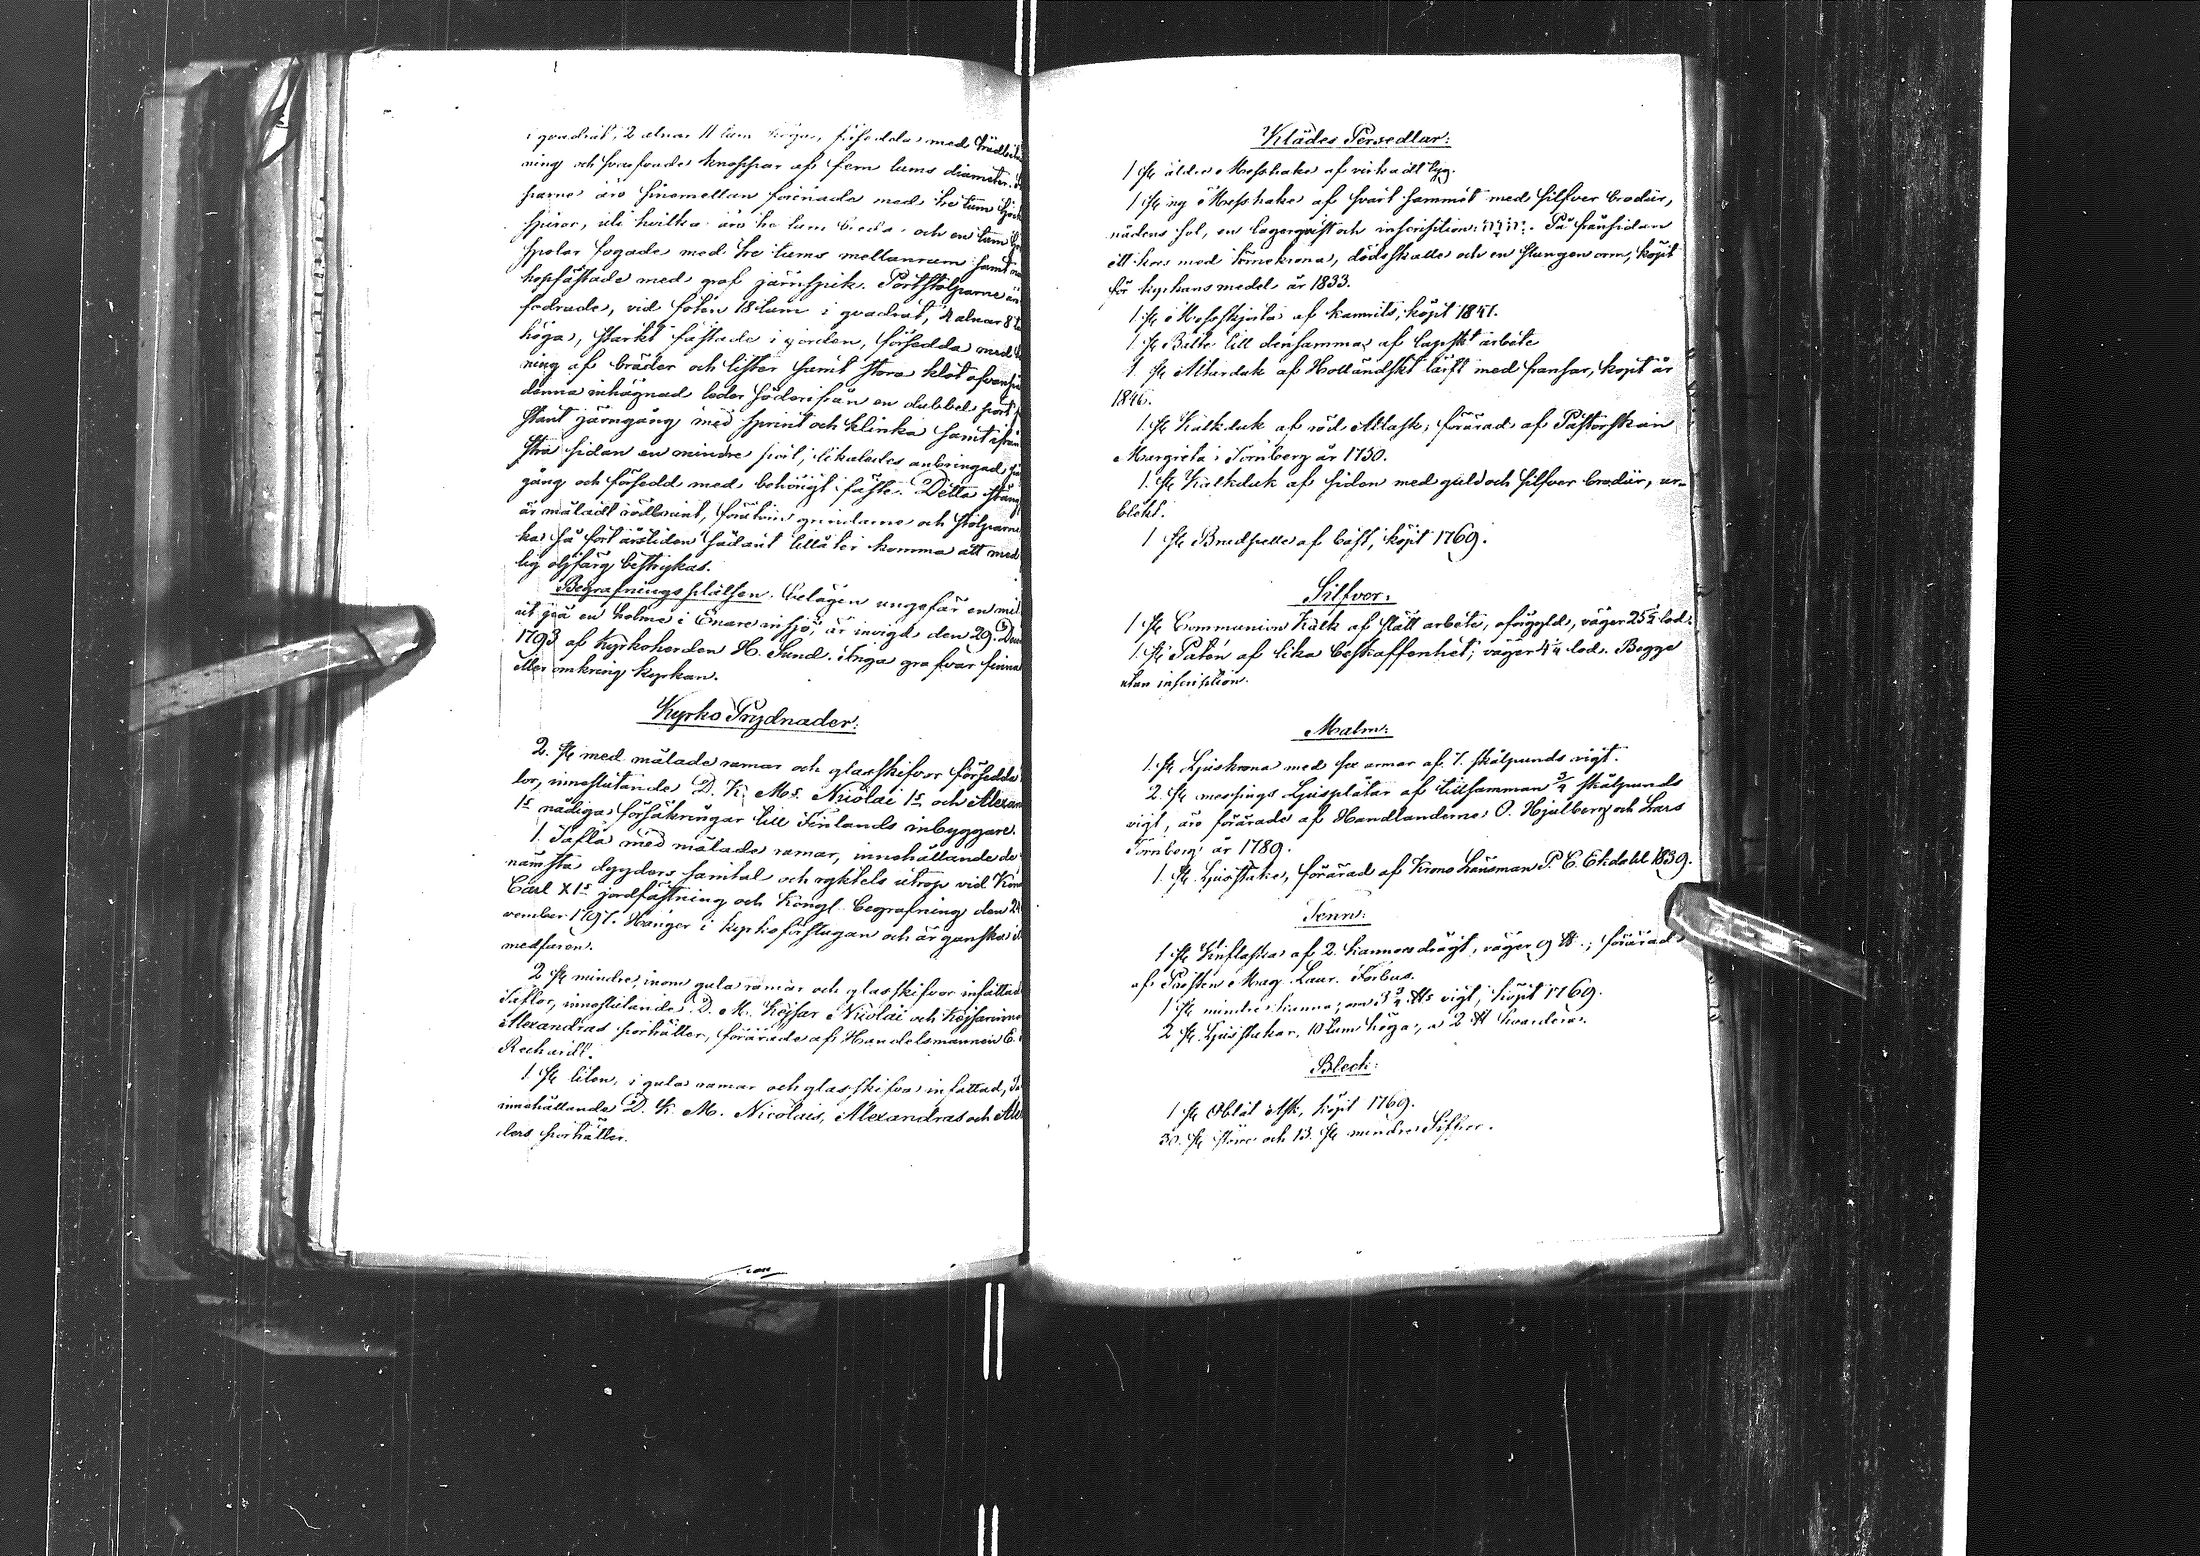 i qvadrat, 2 alnar 11 tum höga, försedda med
ning och svarfvade knoppar af fem tums diameter.
parne äro sinsemellan förenade med tre tum
spiror, uti hvilka äro tre tum breda och en tum
spolar fogade med tre tums mellanrum samt
hopfästade med graf järnspik. Portstolparne än
fodrade, vid foten 18 tum i qvadrat, 4 alnar 8
höga, starkt fästade i jorden, försedda med
ning af bräder och lister samt stora klot ofvanpå
denna inhägnad leder söderifrån en dubbel port
stark järngång med sprint och klinka samt ifrån
stra sidan en mindre port, likaledes anbringad
gång och försedd med behörigt fäste. Detta stäng
är måladt rödbrunt, förutom grindarne och stolparne
ka så fort årstiden sådant tillåter komma att med
lig oljfärg bestrykas.
Begrafningsplatsen belägen ungefär en mil
ut på en holme i Enare insjö, är invigd den 29
1793 af Kyrkoherden H. Sund. Inga grafvar finna
eller omkring kyrkan.
Kyrko Prydnader:
2. st med målade ramar och glasskifvor försedda
lor, inneslutande D. K. Ms Nicolai 1s och Alexan
1s nådiga försäkringar till Finlands inbyggare.
1. Tafla med målade ramar, innehållande de
nämsta dygders samtal och ryktets utrop vid Kon
Carl XIs jordfästning och Kongl. begrafning den 24
vember 1697. Hänger i kyrkoförstugan och är ganska
medfaren.
2 st mindre, inom gula ramar och glasskifvor infattad
Taflor, inneslutande D. M. Kejsar Nicolai och Kejsarinne
Alexandras porträtter, förärade af Handelsmannen E.
Rechardt.
1 st liten, i gula ramar och glasskifva infattad, Ta
innehållande D. K. M. Nicolais, Alexandras och Ale
ders porträtter.
Klädes Persedlar:
1 st äldre Messhake af virkadt tyg.
1 st ny Messhake af svart sammet med silfver brodür,
nådens sol, en lagerqvist och inscription: יהוה. På frånsidan
ett kors med törnekrona, dödskalle och en slungen orm, köpt
för kyrkans medel år 1833.
1 st Messskjorta af kamrits, köpt 1841.
1 st Bälte till densamma af lapskt arbete
1. st Altarduk af Holländskt lärft med fransar, köpt år
1846.
1. st Kalkduk af röd Atlask, förärad af Pastorskan
Margreta Törnberg år 1730.
1. st Kalkduk af siden med guld och silfver brodür, ur-
blekt.
1 st Bredspelle af bast, köpt 1769.
Silfver:
1 st Communion Kalk af slätt arbete, oförgyld, väger 25½ lod.
1. st Patén af lika beskaffenhet, väger 4¼ lod. Begge
utan inscription.
Malm:
1. st Ljuskrona med sex armar af 7. skålpunds vigt.
2. st messings Ljusplåtar af tillsamman ¾ skålpunds
vigt, äro förärade af Handlanderne O. Hjulberg och Lars
Törnberg år 1789.
1. st Ljusstake, förärad af Krono Länsman P. C. Ekdahl 1839.
Tenn:
1 st Vinflaska af 2. kannors drägt, väger 9 ℔.; förärad
af Prosten Mag. Laur. Forbus.
1 st mindre kanna, om 3¾ ℔s vigt, köpt 1769.
2 st Ljusstakar, 10 tum höga, a 2 ℔ hvardera.
Bleck:
1 st Oblat Ask, köpt 1769.
30. st större och 13. st mindre Siffror.